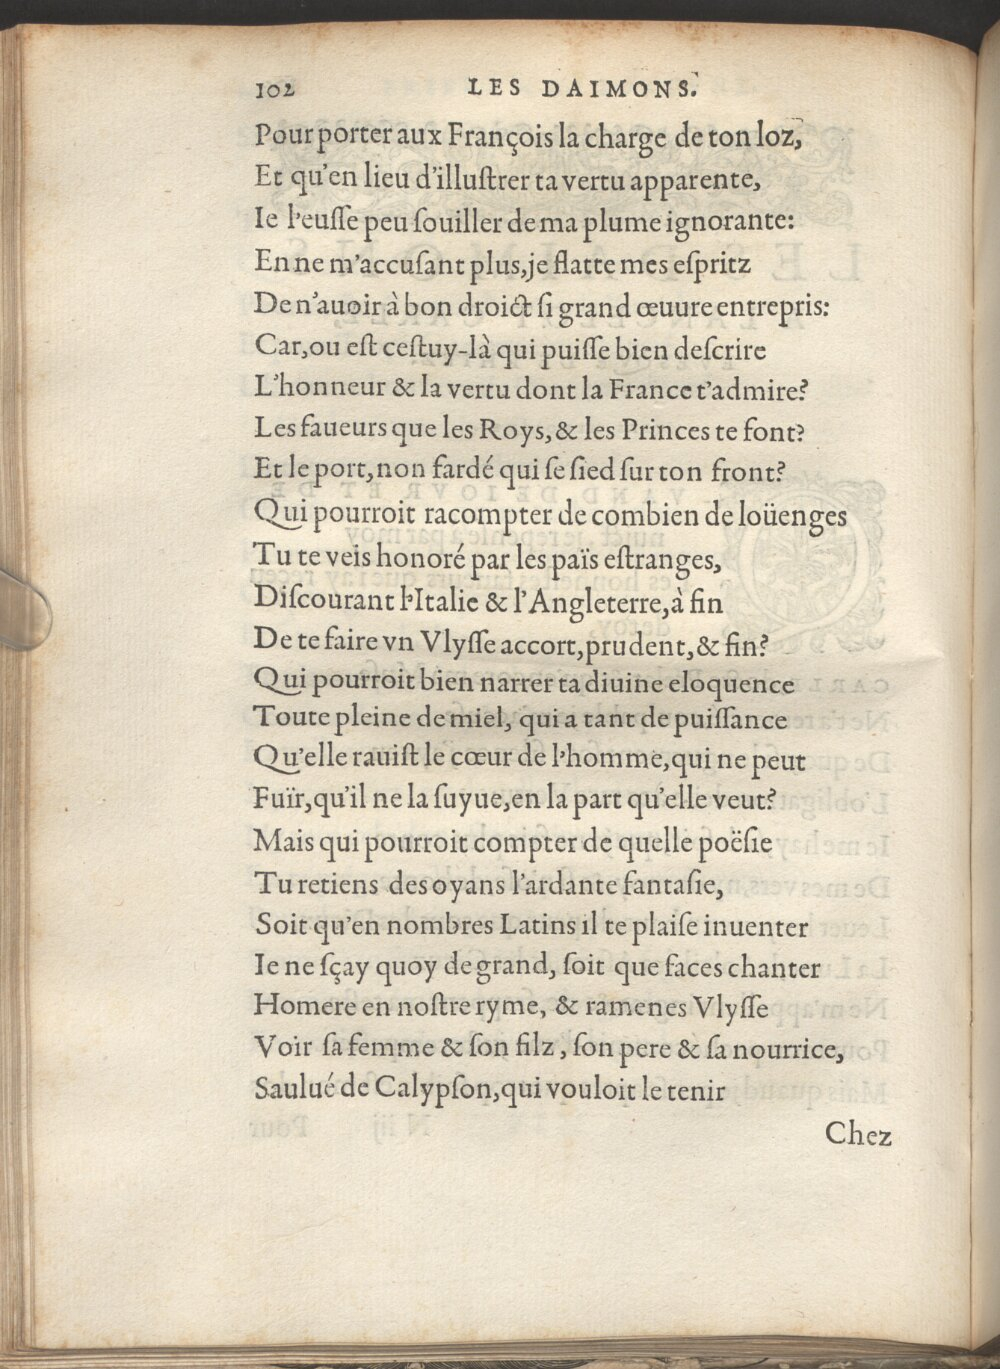 102 LES DAIMONS.
Pour porter aux François la charge de ton loz,
Et qu'en lieu d'illuſtrer ta vertu apparente,
Ie l'euſſe peu ſouiller de ma plume ignorante:
En ne m'accuſant plus, je flatte mes eſpritz
De n'auoir à bon droict ſi grand œuure entrepris:
Car, ou eſt ceſtuy-là qui puiſſe bien deſcrire
L'honneur & la vertu dont la France t'admire?
Les faueurs que les Roys, & les Princes te font?
Et le port, non fardé qui ſe ſied ſur ton front?
Qui pourroit racompter de combien de loüenges
Tu te veis honoré par les païs eſtranges,
Diſcourant l'Italie & l'Angleterre, à fin
De te faire vn Vlyſſe accort, prudent, & fin?
Qui pourroit bien narrer ta diuine eloquence
Toute pleine de miel, qui a tant de puiſſance
Qu'elle rauiſt le cœur de l'homme, qui ne peut
Fuïr, qu'il ne la ſuyue, en la part qu'elle veut?
Mais qui pourroit compter de quelle poëſie
Tu retiens des oyans l'ardante fantaſie,
Soit qu'en nombres Latins il te plaiſe inuenter
Ie ne ſçay quoy de grand, ſoit que faces chanter
Homere en noſtre ryme, & ramenes Vlyſſe
Voir ſa femme & ſon filz, ſon pere & ſa nourrice,
Saulué de Calypſon, qui vouloit le tenir
Chez